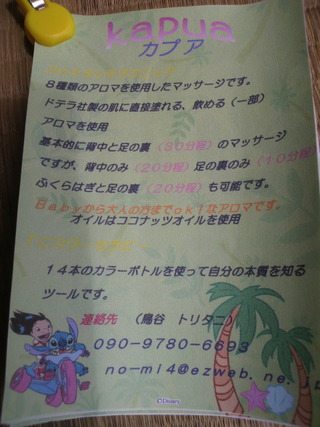 kapua
カプア
8種類のアロマを使用したマッサージです。
ドテラ社製の肌に直接塗れる、飲める(一部)
アロマを使用
基本的に背中と足の裏(30分程)のマッサージ
ですが、背中のみ(20分程)足の裏のみ(10分程)
ふくらはぎと足の裏(20分程)も可能です。
Babyから大人の方までok!なアロマです。
オイルはココナッツオイルを使用
14本のカラーボトルを使って自分の本質を知る
ツールです。
連絡先 (鳥谷 トリタニ)
090-9780-6693
no-mi4@ezweb.ne.
©Disney